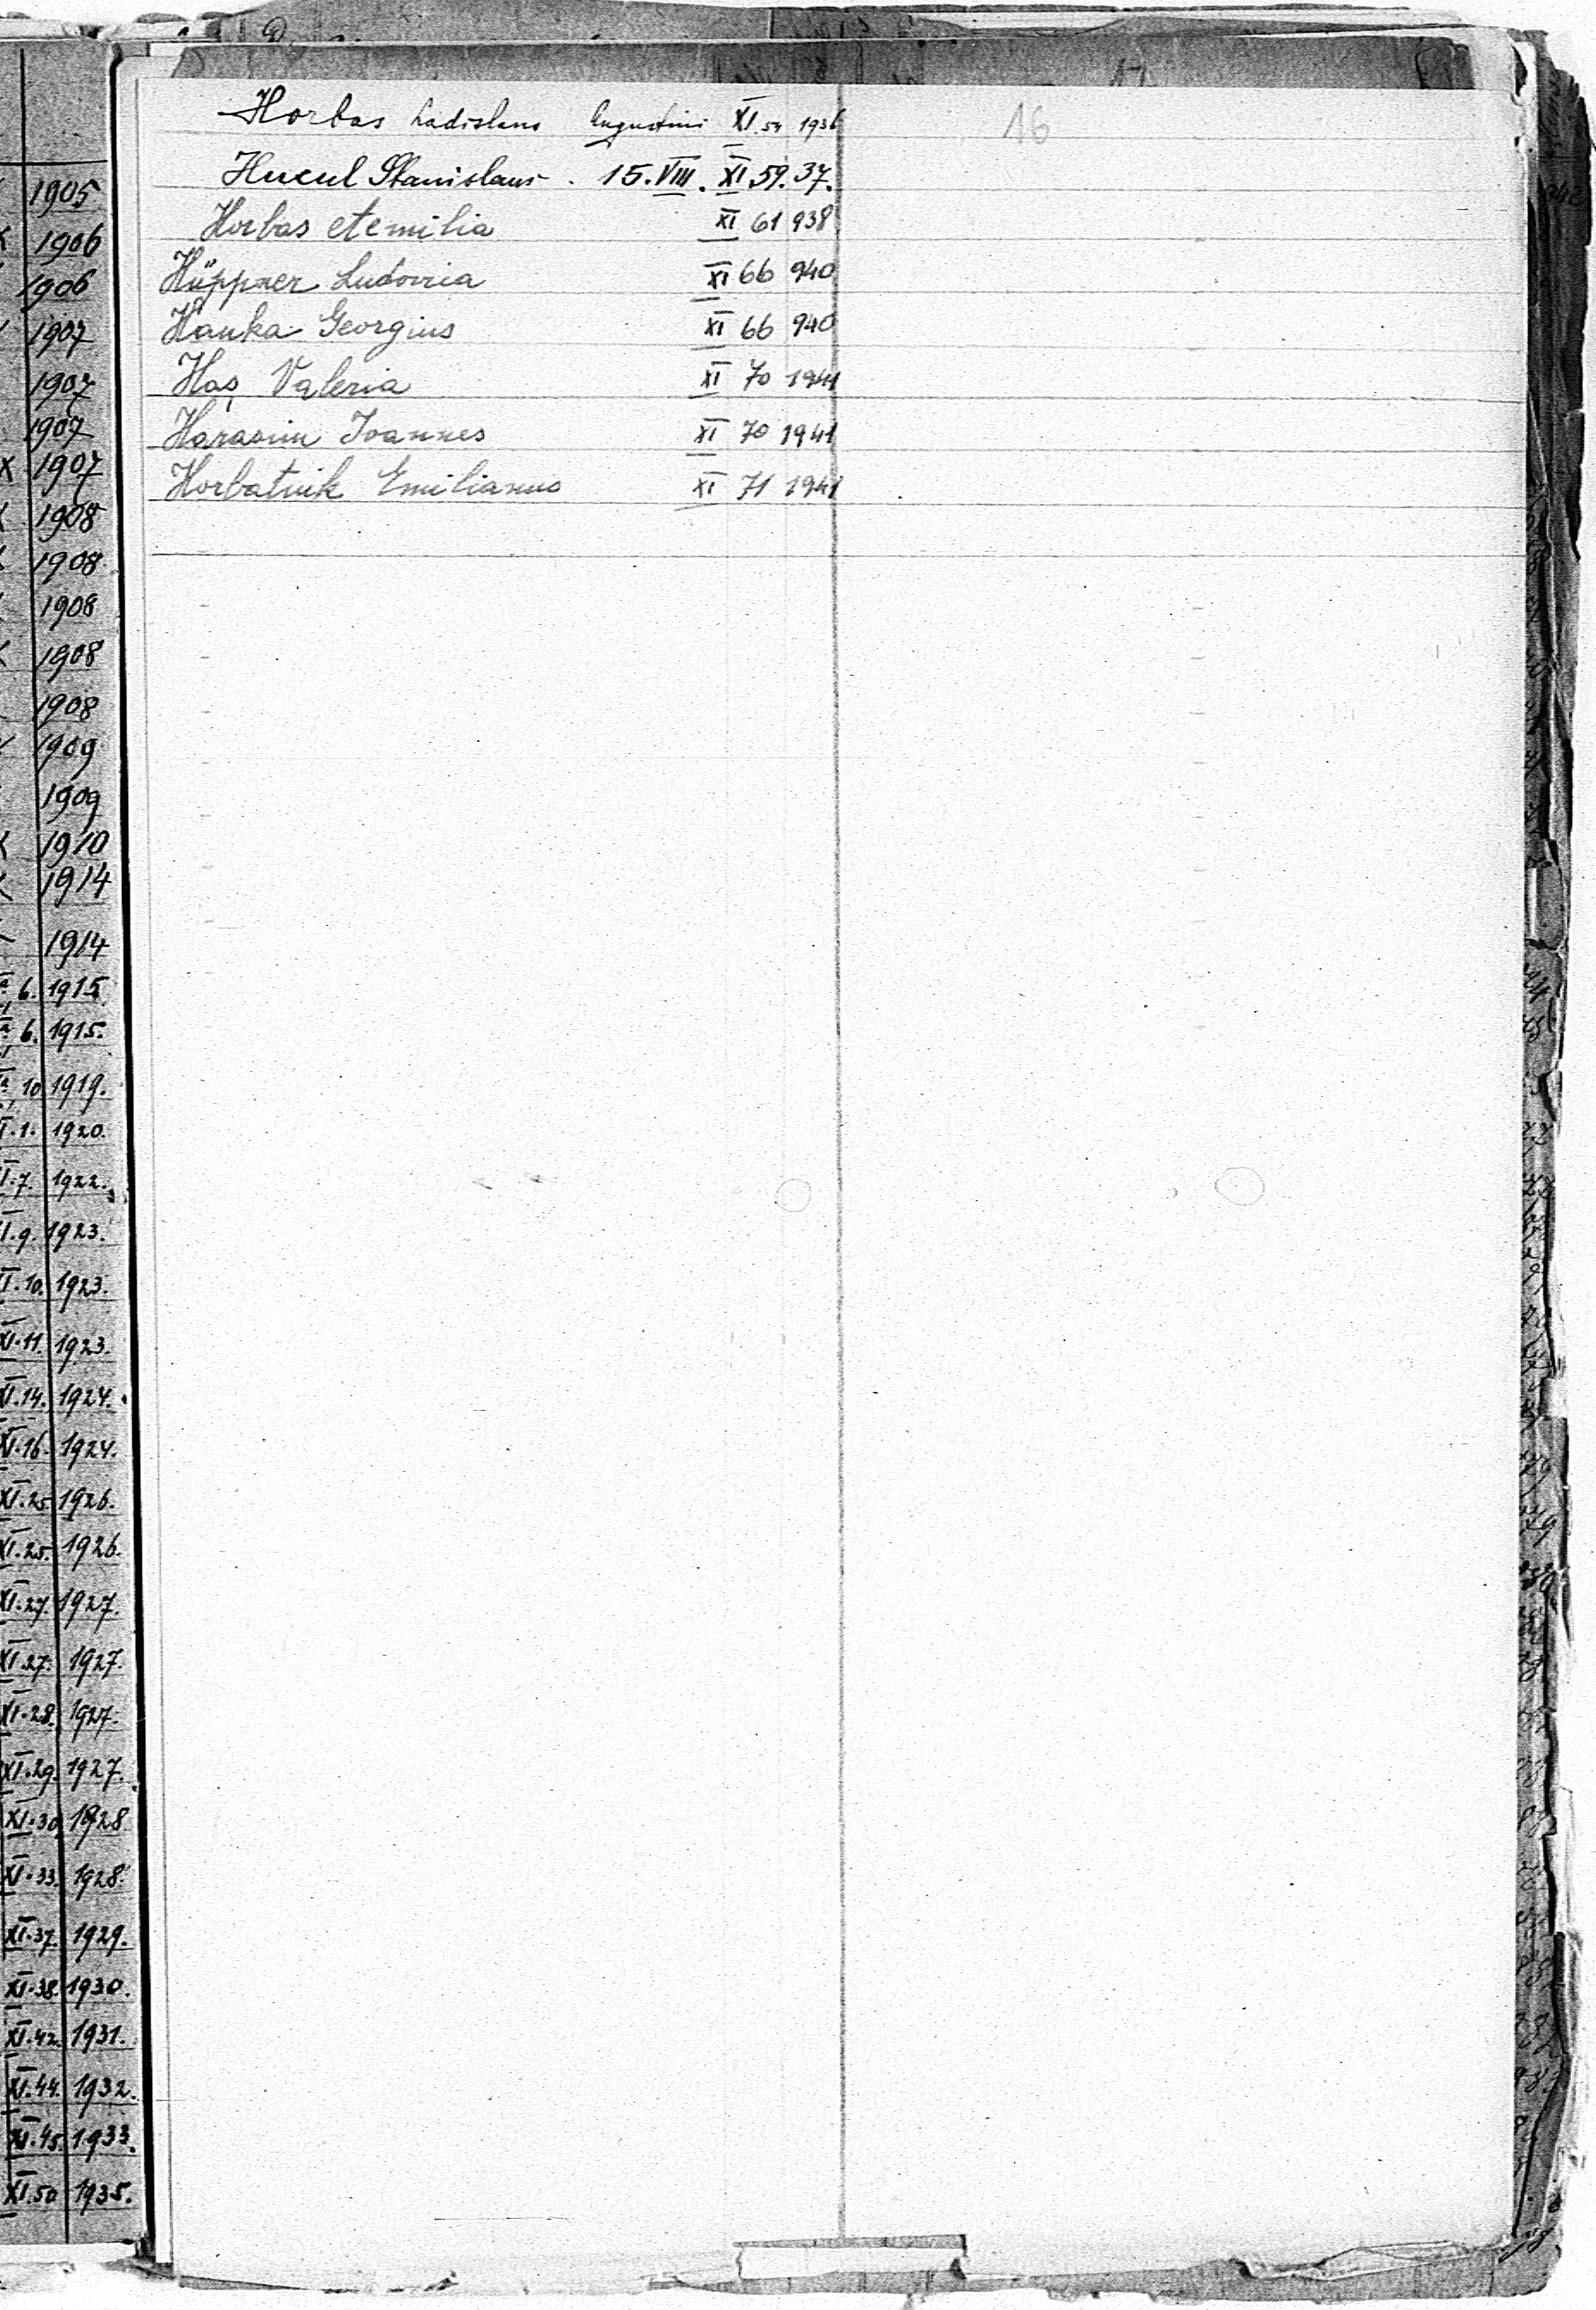 Horbas Ladislaus Augustini XI. 54 1936
16
Hucul Stanislaus . 15. VIII. XI 59. 37.
Horbas etemilia XI 61 938
Hüppner Ludovica XI 66 940
Hanka Georgius XI 66 940
Has Valeria XI 70 1941
Harasim Joannes XI 70 1941
Horbatnik Emilianus XI 71 1941
1905
1906
1906
1907
1907
1907
X 1907
1908
1908
1908
1908
1908
1909
1909
1910
1914
1914
6. 1915
6. 1915.
10 1919.
1. 1920.
7. 1922.
9. 1923.
10. 1923.
XI. 11. 1923.
XI. 14. 1924.
XI. 16. 1924.
XI. 25. 1926.
XI. 25. 1926.
XI. 27. 1927.
XI. 27. 1927.
XI. 28. 1927.
XI. 29. 1927.
XI. 30. 1928
XI. 33. 1928.
XI. 37. 1929.
XI. 38. 1930.
XI. 42. 1931.
XI. 44. 1932.
XI. 45. 1933.
XI. 50 1935.